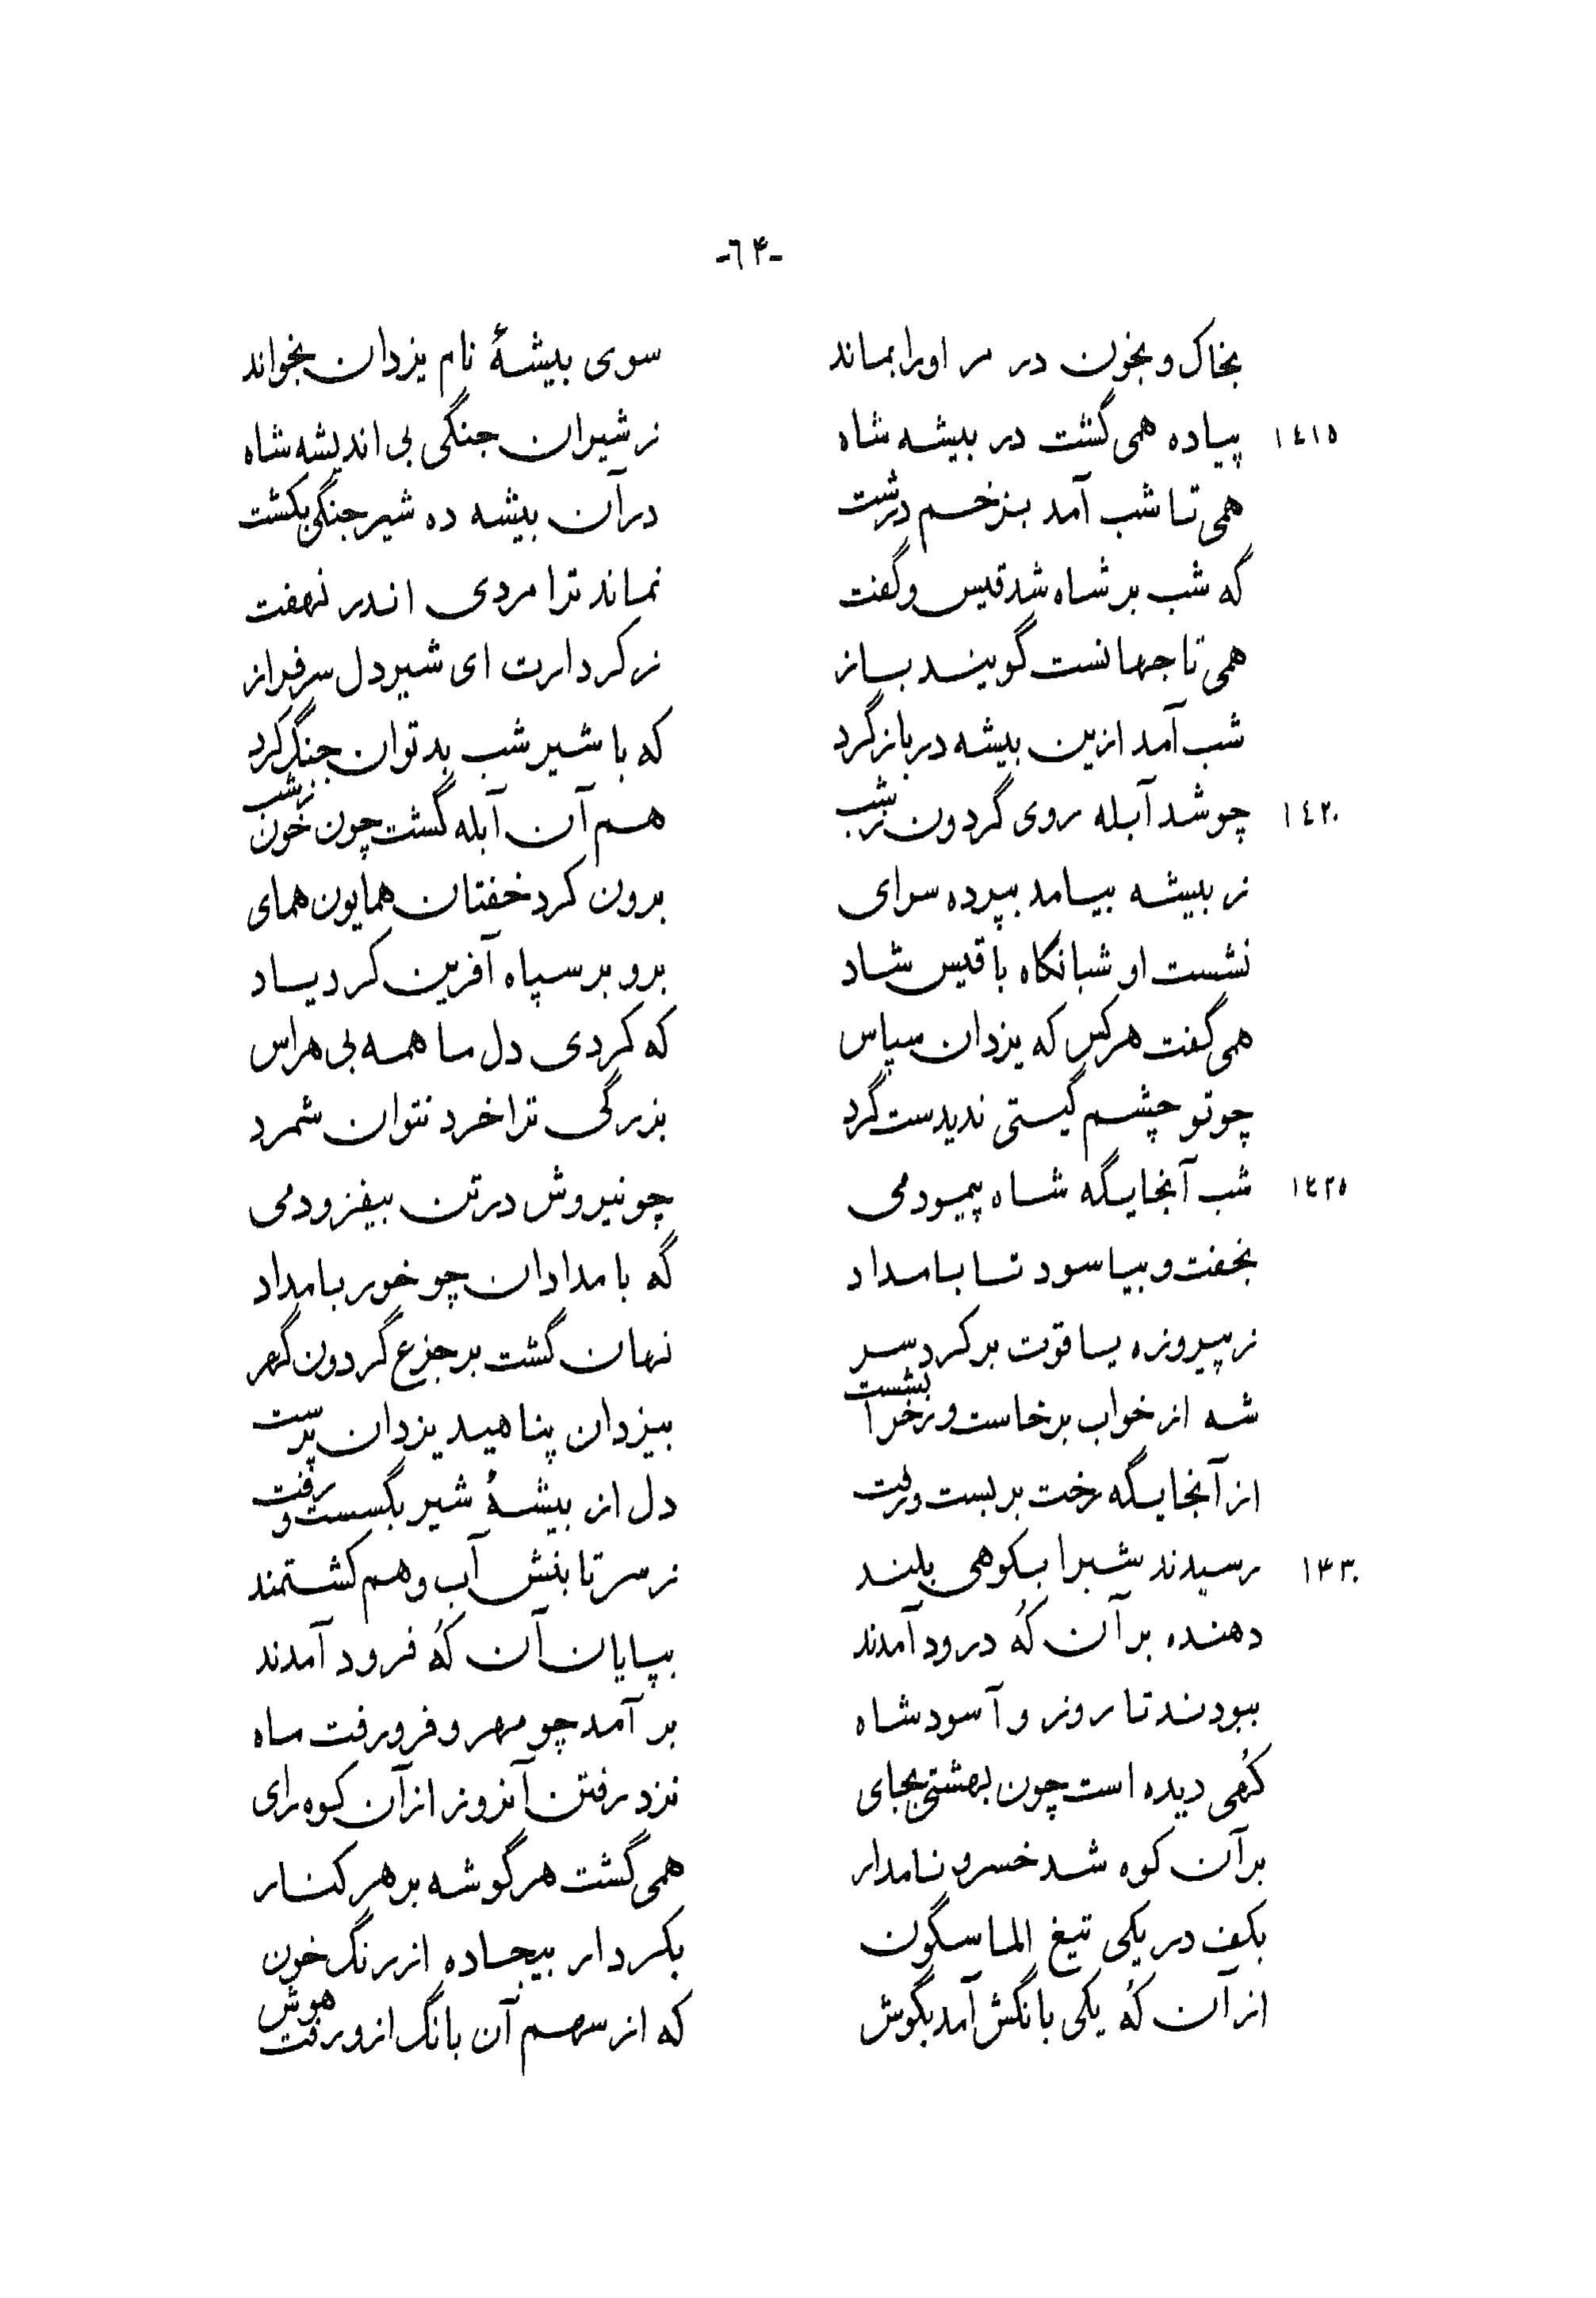 -٦۴-
بخاک و بخون در مر او را بماند سوی بیشهٔ نام یزدان بخواند
١٤١٥ پیاده همی گشت در بیشه شاه ز شیران جنگی بی اندیشه شاه
همی تا شب آمد بزخم درشت در آن بیشه ده شیر جنگی بکشت
گه شب بر شاه شد قیس و گفت نماند ترا مردی اندر نهفت
همی تا جهانست گویند باز ز کردارت ای شیردل سرفراز
شب آمد ازین بیشه در باز گرد که با شیر شب بد توان جنگ کرد
١٤٢٠ چو شد آبله روی گردون ز شب هم آن آبله گشت چون خون ز شب
ز بیشه بیامد بپرده سرای برون کرد خفتان همایون همای
نشست او شبانگاه با قیس شاد برو بر سپاه آفرین کرد یاد
همی گفت هر کس که یزدان سپاس که کردی دل ما همه بی هراس
چو تو چشم گیتی ندیدست گرد بزرگی ترا خرد نتوان شمرد
١٤٢٥ شب آنجایگه شاه پیمود می چو نیروش در تن بیفزود می
بخفت و بیاسود تا بامداد گه بامدادان چو خور بامداد
ز پیروزه یاقوت بر کرد سر نهان گشت بر جزع گردون گهر
شه از خواب برخاست و ز خرا نشست بیزدان پناهید یزدان پرست
از آنجایگه رخت بر بست و رفت دل از بیشهٔ شیر بگسست و رفت
١۴٣٠ رسیدند شب را بکوهی بلند ز سر تا بنش آب و هم کشتمند
دهنده بر آن کُه درود آمدند بپایان آن کُه فرود آمدند
ببودند تا روز و آسود شاه بر آمد چو مهر و فرو رفت ماه
کُهی دیده است چون بهشتی بجای نزد رفتن آنروز از آن کوه رای
بر آن کوه شد خسرو نامدار همی گشت هر گوشه بر هر کنار
بکف در یکی تیغ الماسگون بکردار بیجاده از رنگ خون
از آن کُه یکی بانگش آمد بگوش که از سهم آن بانگ ازو رفت هوش